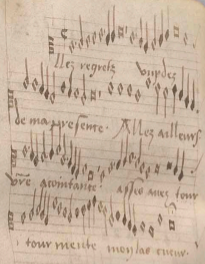 llez regretz vuydez
de ma presente. Allez ailleurs
v̄r̄e acointante. assez avez tour
tourmente mon las cueur.